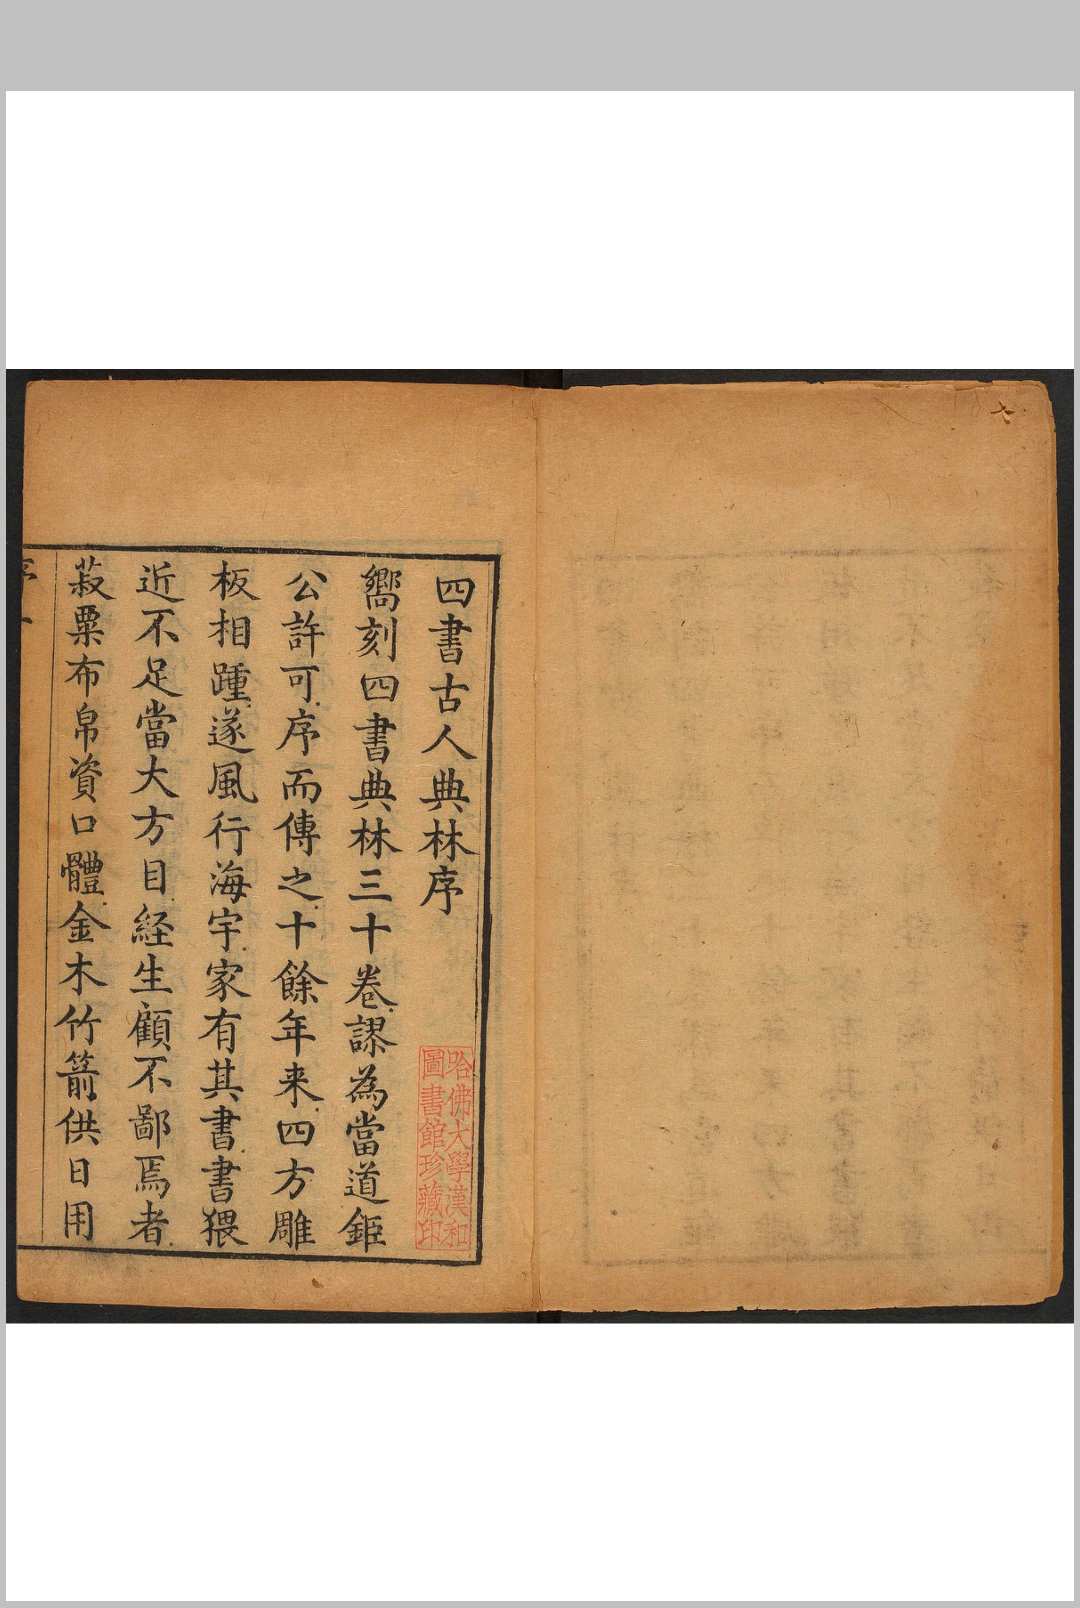 四書古人典林序
嚮刻四書典林三十卷謬為當道鉅
公許可序而傳之十餘年来四方雕
板相踵遂風行海宇家有其書書猥
近不足當大方目経生顧不鄙焉者
菽粟布帛資口體金木竹箭供日用
哈佛大學漢和
圖書館珍藏印